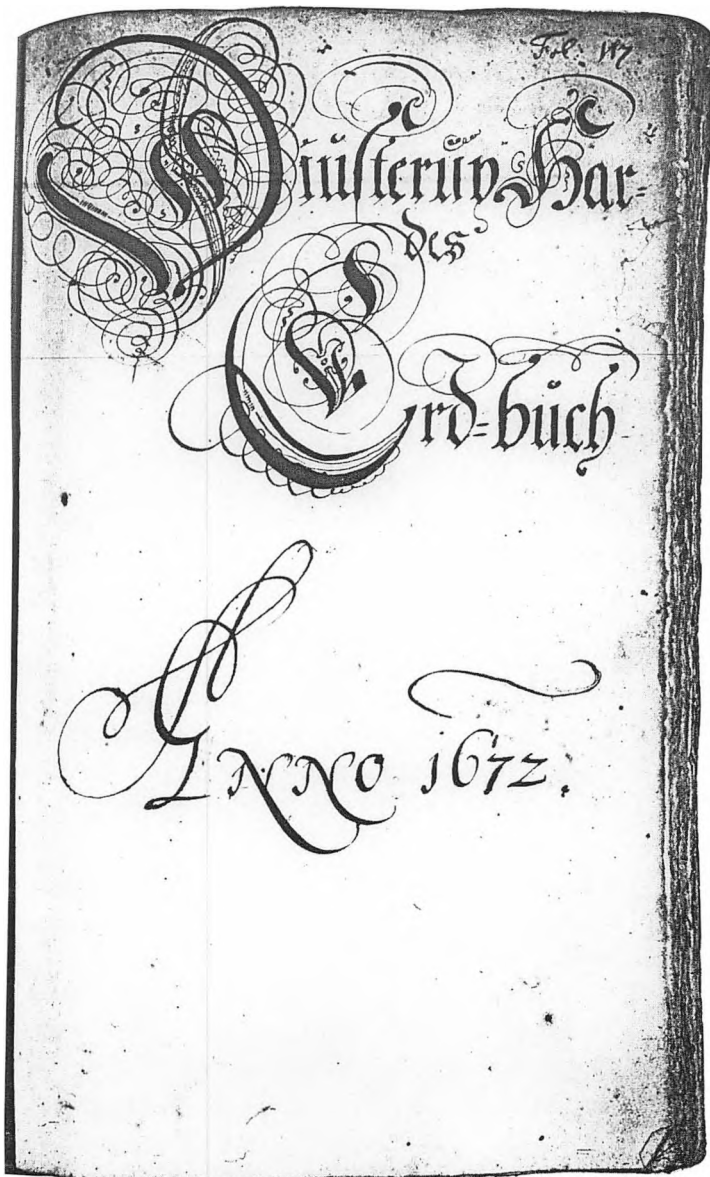 Fol: 117.
Tiusterup Har=
des
Erd=buch
ANNO 1672.